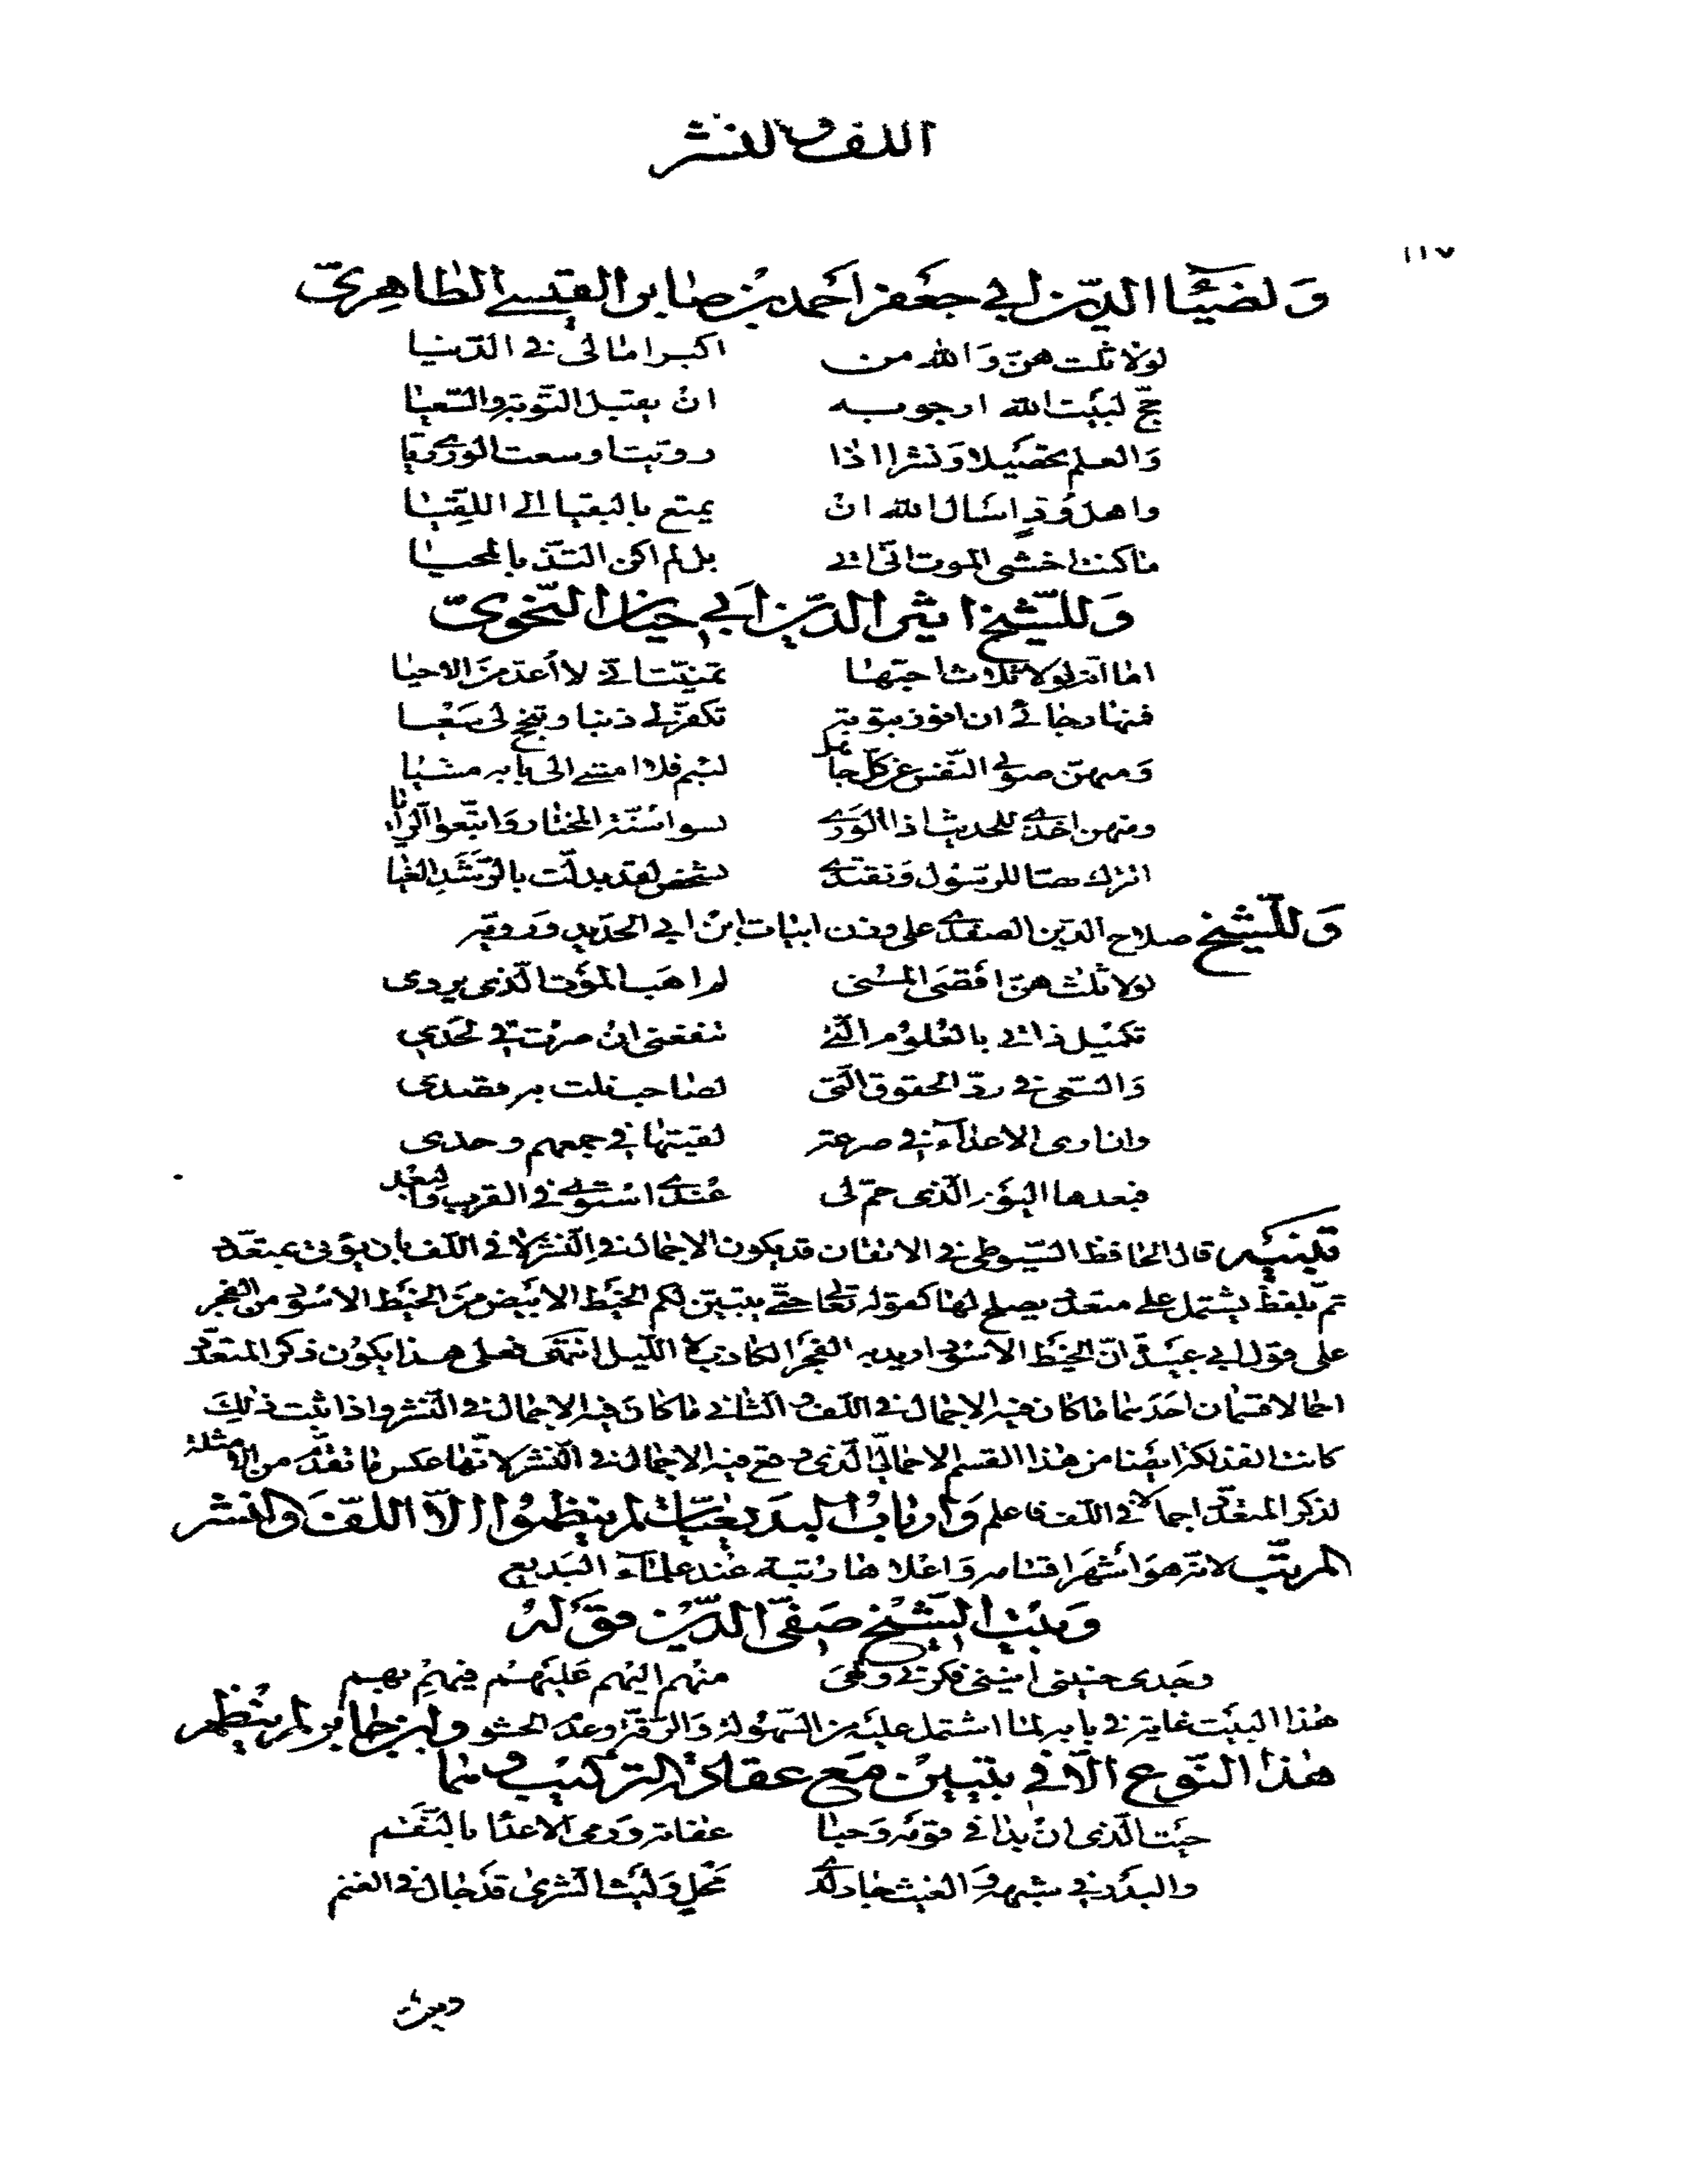 اللف والنشر
١١٧
ولضياء الدين ابي جعفر احمد بن صابر القيسي الظاهري
لولا ثلث هن والله من اكبر امالى في الدنيا
حج لبيت الله ارجو به ان يقبل التوبة والسعيا
والعلم تحصيلا ونشرا اذا رويت اوسعت الورى ريا
واهل ود اسال الله ان يمتع بالبقيا الى اللقيا
ما كنت اخشى الموت انى اتى بل لم اكن التذ بالمحيا
وللشيخ اثير الدين ابي حيان النحوي
اما انه لولا ثلاث احبها تمنيت اني لا اعد من الاحيا
فمنها رجائي ان افوز بتوبة تكفر لي ذنبا وتنجح لى سعيا
ومنهن صوني النفس عن كل جاهل لئيم فلا امشي الى بابه مشيا
ومنهن اخذي للحديث اذا الورى نسوا سنة المختار واتبعوا الرايا
اتترك نصا للرسول وتقتدي بشخص لقد بدلت بالرشد الغيا
وللشيخ صلاح الدين الصفدي على وزن ابيات ابن ابي الحديد ورويه
لولا ثلث هن اقصى المنى لم اهب الموت الذى يردى
تكميل ذاتي بالعلوم التي تنفعنى ان صرت في لحدي
والسعى في رد الحقوق التى لصاحب نلت به قصدى
وان ارى الاعداء في صرعة لقيتها في جمعهم وحدى
فبعدها اليوم الذى حم لى عندي استوى في القرب والبعد
تنبيه قال الحافظ السيوطى في الاتقان قد يكون الاجمال في النشر لا في اللف بان يؤتى بمتعدد
ثم بلفظ يشتمل على متعدد يصلح لهما كقوله تعالى حتى يتبين لكم الخيط الابيض من الخيط الاسود من الفجر
على قول ابي عبيدة ان الخيط الاسود اريد به الفجر الكاذب لا الليل انتهى فعلى هذا يكون ذكر المتعدد
اجمالا قسمان احدهما ما كان فيه الاجمال في اللف والثاني ما كان فيه الاجمال في النشر واذا ثبت ذلك
كانت الفذلكة ايضا من هذا القسم الاجمالي الذى وقع فيه الاجمال في النشر لانها عكس ما تقدم من الامثلة
لذكر المتعدد اجمالا في اللف فاعلم وارباب البديعيات لم ينظموا الا اللف والنشر
المرتب لانه هو اشهر اقسامه واعلاها رتبة عند علماء البديع
وبيت الشيخ صفي الدين قوله
وجدى حنينى انينى فكرتي ولهى منهم اليهم عليهم فيهم بهم
هذا البيت غاية في بابه لما اشتمل عليه من السهولة والرقة وعدم الحشو وابن جابر لم ينظم
هذا النوع الا في بيتين مع عقادة التركيب وهما
حيث الذى ان بدا في قومه وحبا عفاته ورمى الاعدا بالنقم
والبدر في شبهه والغيث جاد لدى محل وليث الشرى قد جال في الغنم
وبيت